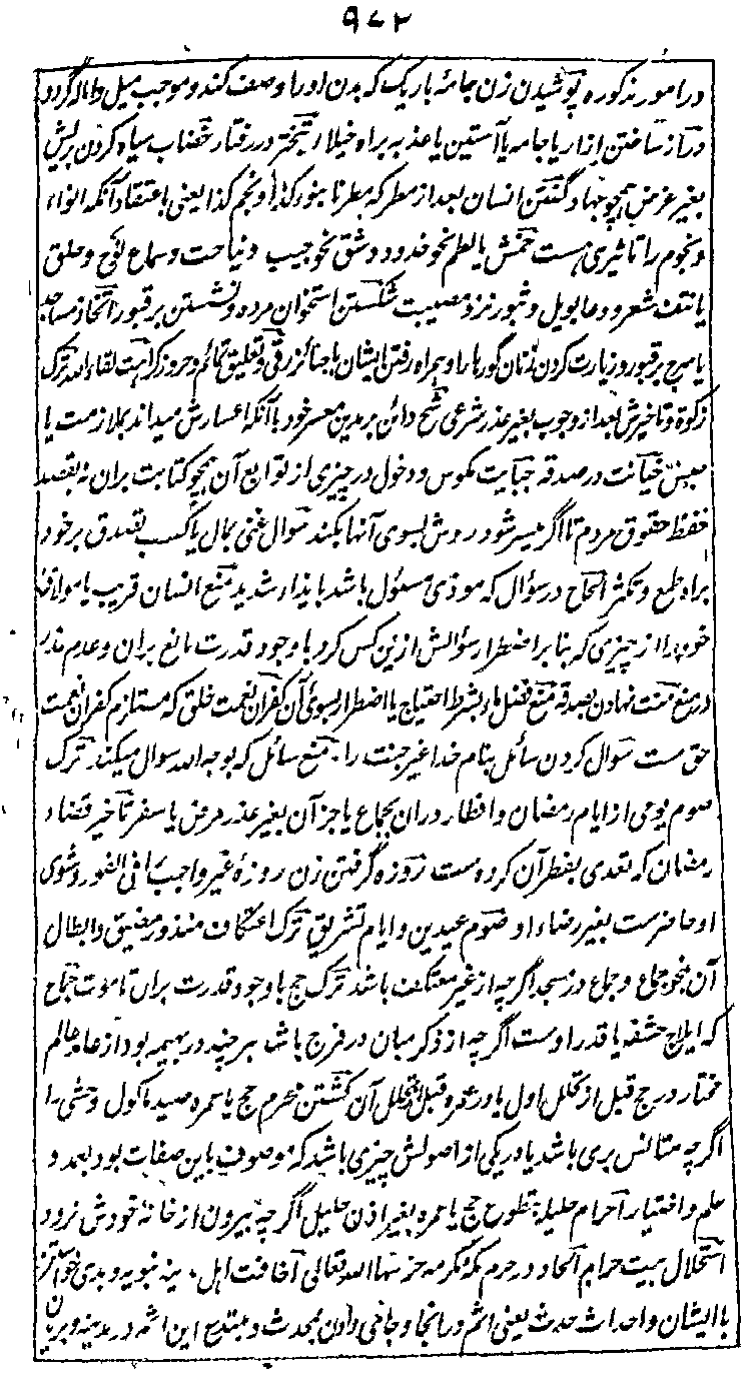 ۹۷۲
در امور مذکوره پوشیدن زن جامهٔ باریک که بدن او را وصف کند و موجب میل و اماله گردد
دراز ساختن ازار یا جامه یا آستین یا عذبه براه خیلا تبختر در رفتار خضاب سیاه کردن بریش
بغیر غرض همچو جهاد گفتن انسان بعد از مطر که مطرنا بنوء کذا او نجم کذا یعنی باعتقاد آنکه انواء
و نجوم را تاثیری ست خمش یا لطم نحو خدود و شق نحو جیب و نیاحت و سماع نوح و حلق
یا نتف شعر و دعا بویل و ثبور نزد مصیبت شکستن استخوان مرده و نشستن بر قبور اتخاذ مساجد
یا سرج بر قبور و زیارت کردن زنان گورها را و همراه رفتن ایشان با جنائز رقی و تعلیق تمائم و حروز کراهت لقاء الله ترک
زکوة و تاخیرش بعد از وجوب بغیر عذر شرعی شح دائن بر مدین معسر خود با آنکه اعسارش میداند بملازمت یا
حبس خیانت در صدقه جبایت مکوس و دخول در چیزی از توابع آن همچو کتابت بران نه بقصد
حفظ حقوق مردم تا اگر میسر شود ردش بسوی آنها بکند سوال غنی بمال یا کسب تصدق بر خود
براه طمع و تکثر الحاح در سؤال که موذی مسئول باشد بایذاء شدید منع انسان قریب یا مولای
خود را از چیزی که بنا بر اضطرار سؤالش ازین کس کرد با وجود قدرت مانع بران و عدم عذر
در منع منت نهادن بصدقه منع فضل ماء بشرط احتیاج یا اضطرار بسوی آن کفران نعمت خلق که مستلزم کفران نعمت
حق ست سوال کردن سائل بنام خدا غیر جنت را منع سائل که بوجه الله سوال میکند ترک
صوم یومی از ایام رمضان و افطار دران بجماع یا جز آن بغیر عذر مرض یا سفر تاخیر قضاء
رمضان که تعدی بفطر آن کرده ست روزه گرفتن زن روزهٔ غیر واجب فی الفور و شوی
او حاضرست بغیر رضاء او صوم عیدین و ایام تشریق ترک اعتکاف منذور مضیق و ابطال
آن بنحو جماع و جماع در مسجد اگرچه از غیر معتکف باشد ترک حج با وجود قدرت بران تا موت جماع
که ایلاج حشفه یا قدر اوست اگرچه از ذکر مبان در فرج باشد هر چند در بهیمه بود از عامد عالم
مختار در حج قبل از تحلل اول یا در عمره قبل تحلل آن کشتن محرم حج یا عمره صید ماکول وحشی را
اگرچه متانس بری باشد یا در یکی از اصولش چیزی باشد که موصوف باین صفات بود بعمد و
علم و اختیار احرام حلیله بتطوع حج یا عمره بغیر اذن حلیل اگرچه بیرون از خانهٔ خودش نرود
استحلال بیت حرام الحاد در حرم مکه مکرمه حرسها الله تعالی اخافت اهل مدینه نبویه و بدی خواستن
با ایشان و احداث حدث یعنی اثم در انجا و جای دادن بمحدث و مبتدع این اثم در مدینه و بریدن